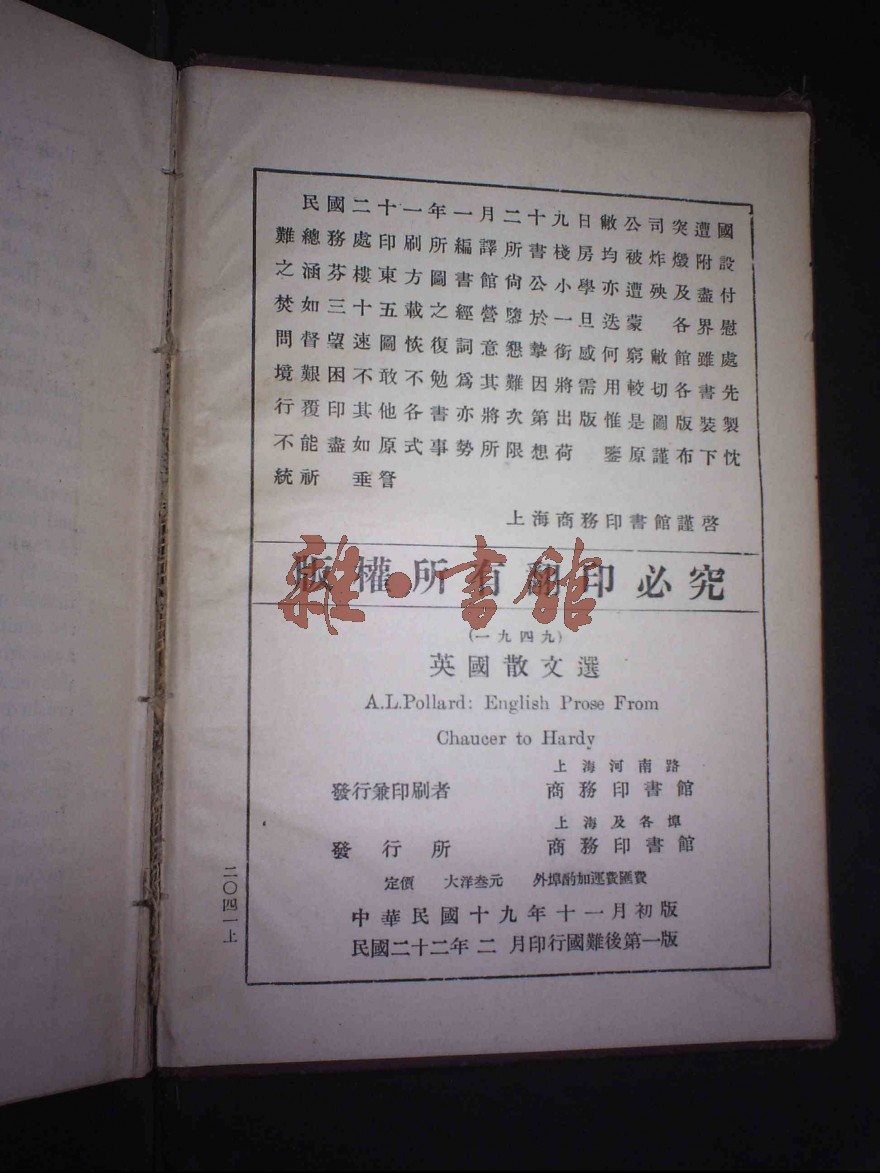 民國二十一年一月二十九日敝公司突遭國
難總務處印刷所編譯所書棧房均被炸燬附設
之涵芬樓東方圖書館尙公小學亦遭殃及盡付
焚如三十五載之經營隳於一旦迭蒙 各界慰
問督望速圖恢復詞意懇摯銜感何窮敝館雖處
境艱困不敢不勉爲其難因將需用較切各書先
行覆印其他各書亦將次第出版惟是圖版裝製
不能盡如原式事勢所限想荷 鑒原謹布下忱
統祈 垂詧
上海商務印書館謹啓
版權所有翻印必究
雜·書館
(一九四九)
英國散文選
A.L.Pollard: English Prose From
Chaucer to Hardy
上海河南路
發行兼印刷者 商務印書館
上海及各埠
發行所 商務印書館
定價 大洋叁元 外埠酌加運費匯費
中華民國十九年十一月初版
民國二十二年二月印行國難後第一版
二〇四一上